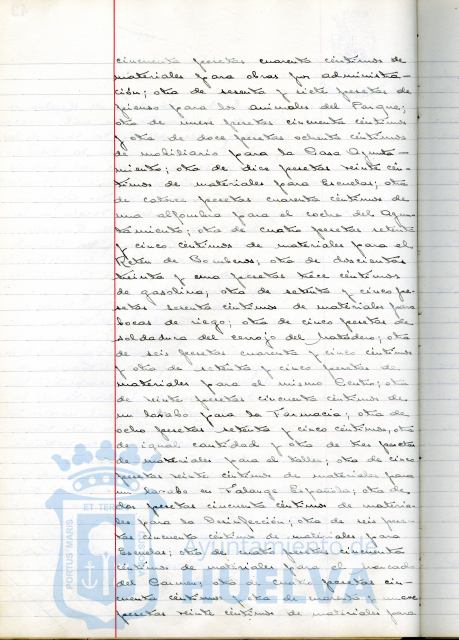 cincuenta pesetas cuarenta céntimos de
materiales para obras por administra-
ción; otra de sesenta y siete pesetas de
pienso para los animales del Parque;
otra de nueve pesetas cincuenta céntimos
y otra de doce pesetas ochenta céntimos
de mobiliario para la Casa Ayunta-
miento; otra de diez pesetas veinte cén-
timos de materiales para Escuelas; otra
de catorce pesetas cuarenta céntimos de
una alfombra para el coche del Ayun-
tamiento; otra de cuatro pesetas setenta
y cinco céntimos de materiales para el
Retén de Bomberos; otra de doscientas
treinta y una pesetas trece céntimos
de gasolina; otra de setenta y cinco pe-
setas sesenta céntimos de materiales para
bocas de riego; otra de cinco pesetas de
soldadura del cerrojo del Matadero; otra
de seis pesetas cuarenta y cinco céntimos
y otra de setenta y cinco pesetas de
materiales para el mismo Centro; otra
de veinte pesetas cincuenta céntimos de
un lavabo para la Farmacia; otra de
ocho pesetas setenta y cinco céntimos, otra
de igual cantidad y otra de tres pesetas
de materiales para el taller; otra de cinco
pesetas veinte céntimos de materiales para
un lavabo en Falange Española; otra de
dos pesetas cincuenta céntimos de materia-
les para la Desinfección; otra de seis pese-
tas cincuenta céntimos de materiales para
Escuelas; otra de pesetas cincuenta
céntimos de materiales para el mercado
del Carmen; otra de cuatro pesetas cin-
cuenta céntimos y otra de cuarenta y nueve
pesetas veinte céntimos de materiales para
ET TERRA
PORTUS MARIS
Ayuntamiento de
HUELVA